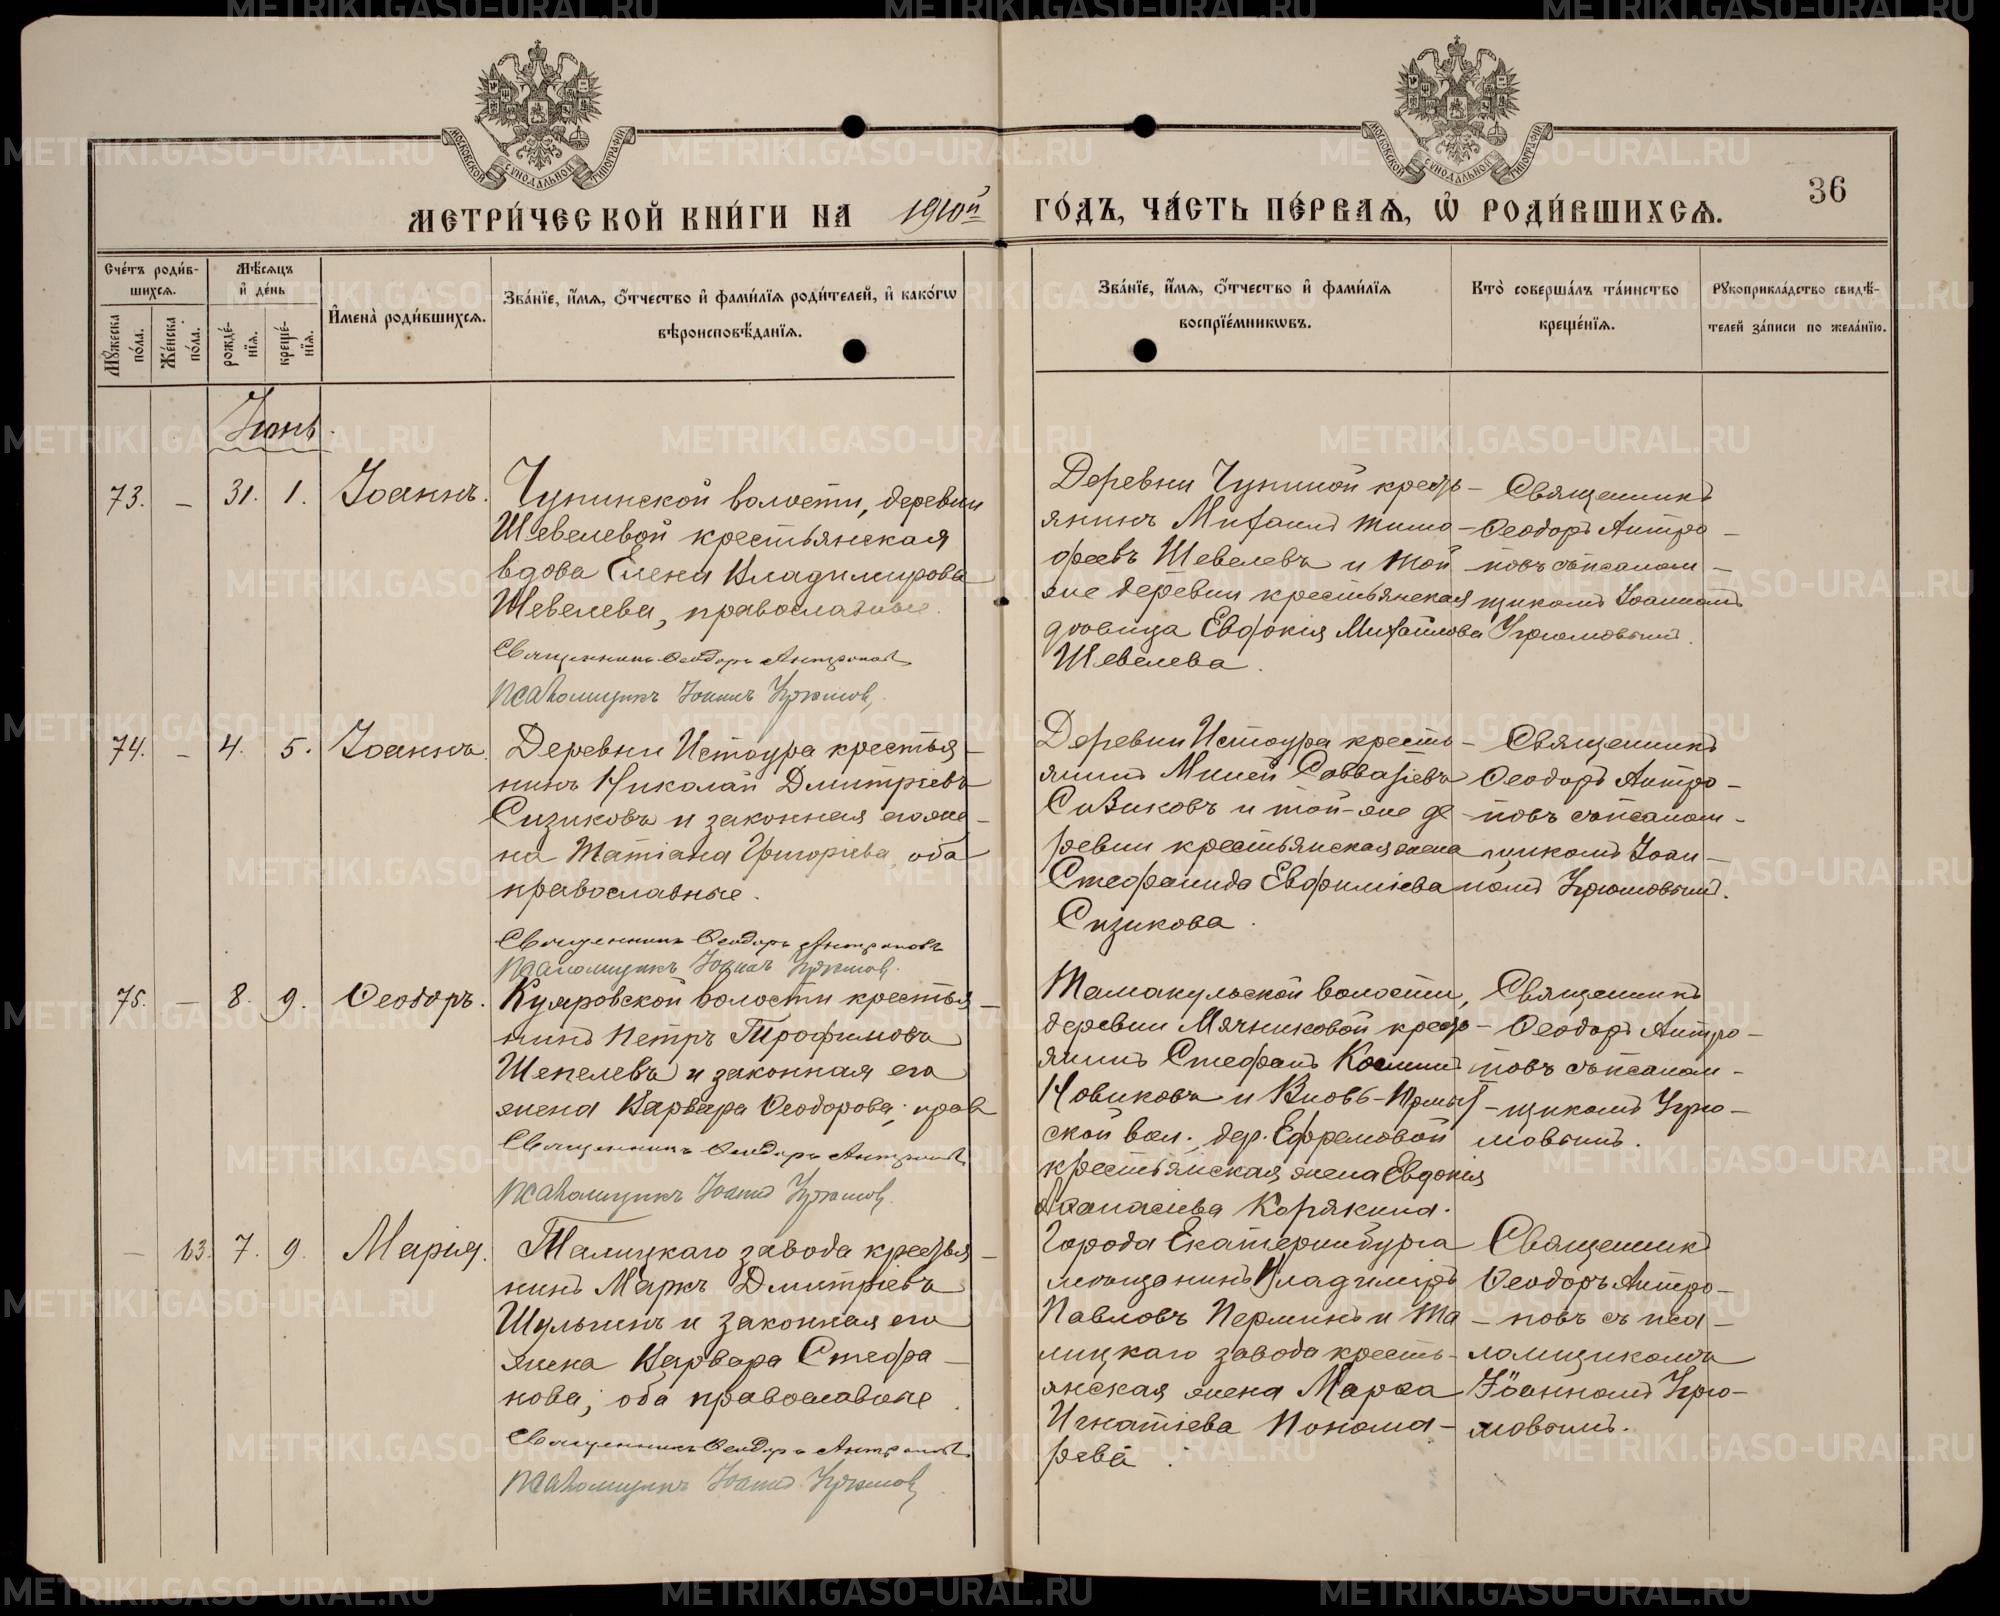 МЕТРИ́ЧЕСКОЙ КНИ́ГИ НА 1910й ГО́ДЪ, ЧА́СТЬ ПЕ́РВАЯ, Ѡ҆ РОДИ́ВШИХСЯ.
36
МОСКОВСКОЙ СѴНОДАЛЬНОЙ ТИПОГРАФІИ
МОСКОВСКОЙ СѴНОДАЛЬНОЙ ТИПОГРАФІИ
Сче́тъ роди́в-
шихся.
Мꙋ́жеска по́ла.
Же́нска по́ла.
Мѣ́сяцъ
и҆ де́нь
рожде́-
нїя.
креще́-
нїя.
И҆мена̀ роди́вшихся.
Зва́нїе, и҆́мя, ѻ҆́тчество и҆ фами́лїя роди́телей, и҆ како́гѡ
вѣроисповѣ́данїя.
Зва́нїе, и҆́мя, ѻ҆́тчество и҆ фами́лїя
воспрїе́мникѡвъ.
Кто̀ соверша́лъ та́инство
креще́нїя.
Рꙋкоприкла́дство свидѣ́-
телей за́писи по жела́нїю.
Іюнь.
73. – 31. 1. Іоаннъ.
Чупинской волости, деревни
Шевелевой крестьянская
вдова Елена Владимирова
Шевелева, православные.
Священникъ Ѳеодоръ Антроповъ
Псаломщикъ Іоаннъ Угрюмовъ
Деревни Чупиной кресть-
янинъ Михаилъ Тимо-
феевъ Шевелевъ и той
же деревни крестьянская
девица Евдокія Михайлова
Шевелева.
Священникъ
Ѳеодоръ Антро-
повъ съ псалом-
щикомъ Іоанномъ
Угрюмовымъ.
74. – 4. 5. Іоаннъ.
Деревни Истоура крестья-
нинъ Николай Дмитріевъ
Сизиковъ и законная его же-
на Татіана Григоріева, оба
православные.
Священникъ Ѳеодоръ Антроповъ
Псаломщикъ Іоаннъ Угрюмов.
Деревни Истоура кресть-
янинъ Миней Савватіевъ
Сизиковъ и той-же де-
ревни крестьянская жена
Стефанида Евфиміева
Сизикова.
Священникъ
Ѳеодоръ Антро-
повъ съ псалом-
щикомъ Іоан-
номъ Угрюмовымъ.
75. – 8. 9. Ѳеодоръ.
Куяровской волости крестья-
нинъ Петръ Трофимовъ
Шепелевъ и законная его
жена Варвара Ѳеодорова; прав
Священникъ Ѳеодоръ Антроповъ
Псаломщикъ Іоаннъ Угрюмов.
Тамакульской волости,
деревни Мячниковой кресть-
янинъ Стефанъ Косминъ
Новиковъ и Вновь-Юрмыт-
ской вол. дер. Ефремовой
крестьянская жена Евдокія
Аѳанасіева Корякина.
Священникъ
Ѳеодоръ Антро-
повъ съ псалом-
щикомъ Угрю-
мовымъ.
– 63. 7. 9. Марія.
Талицкаго завода крестья-
нинъ Маркъ Дмитріевъ
Шульгинъ и законная его
жена Варвара Стефа-
нова; оба православные.
Священникъ Ѳеодоръ Антроповъ
Псаломщикъ Іоаннъ Угрюмов
Города Екатеринбурга
мещанинъ Владиміръ
Павловъ Перминъ и Та-
лицкаго завода кресть-
янская жена Марѳа
Игнатіева Понома-
рева.
Священникъ
Ѳеодоръ Антро-
повъ съ пса-
ломщикомъ
Іоанномъ Угрю-
мовымъ.
METRIKI.GASO-URAL.RU